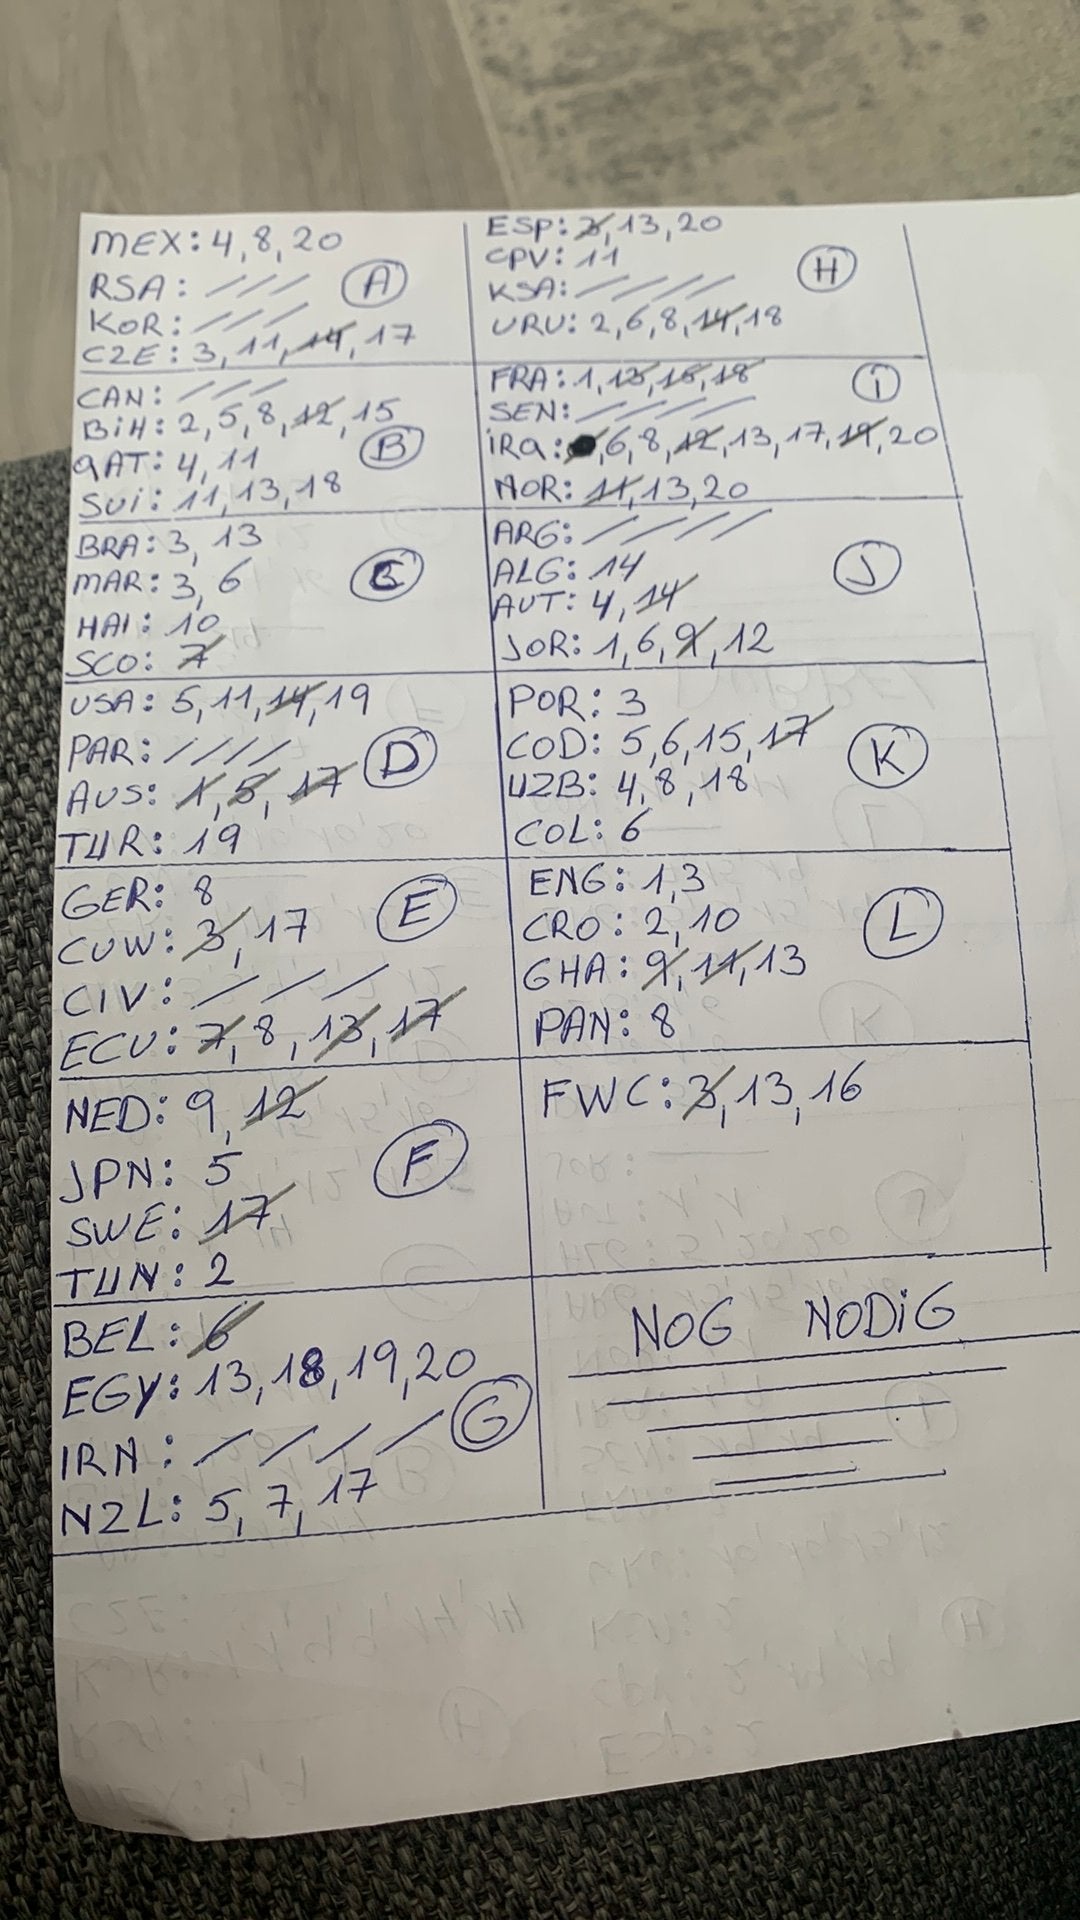 MEX: 4, 8, 20
RSA: / / / (A)
KOR: / / /
CZE: 3, 11, 14, 17
CAN: / / /
BiH: 2, 5, 8, 12, 15
QAT: 4, 11 (B)
SUi: 11, 13, 18
BRA: 3, 13
MAR: 3, 6 (C)
HAI: 10
SCO: 7
USA: 5, 11, 14, 19
PAR: / / / / (D)
AUS: 1, 5, 17
TUR: 19
GER: 8 (E)
CUW: 3, 17
CIV: / / /
ECU: 7, 8, 13, 17
NED: 9, 12
JPN: 5 (F)
SWE: 17
TUN: 2
BEL: 6
EGY: 13, 18, 19, 20
IRN: / / / / (G)
NZL: 5, 7, 17
ESP: 3, 13, 20
CPV: 11 (H)
KSA: / / / /
URU: 2, 6, 8, 14, 18
FRA: 1, 13, 16, 18 (i)
SEN: / / / /
iRQ: 6, 8, 12, 13, 17, 19, 20
NOR: 11, 13, 20
ARG: / / / /
ALG: 14 (J)
AUT: 4, 14
JOR: 1, 6, 9, 12
POR: 3
COD: 5, 6, 15, 17 (K)
UZB: 4, 8, 18
COL: 6
ENG: 1, 3
CRO: 2, 10 (L)
GHA: 9, 11, 13
PAN: 8
FWC: 3, 13, 16
NOG NODiG